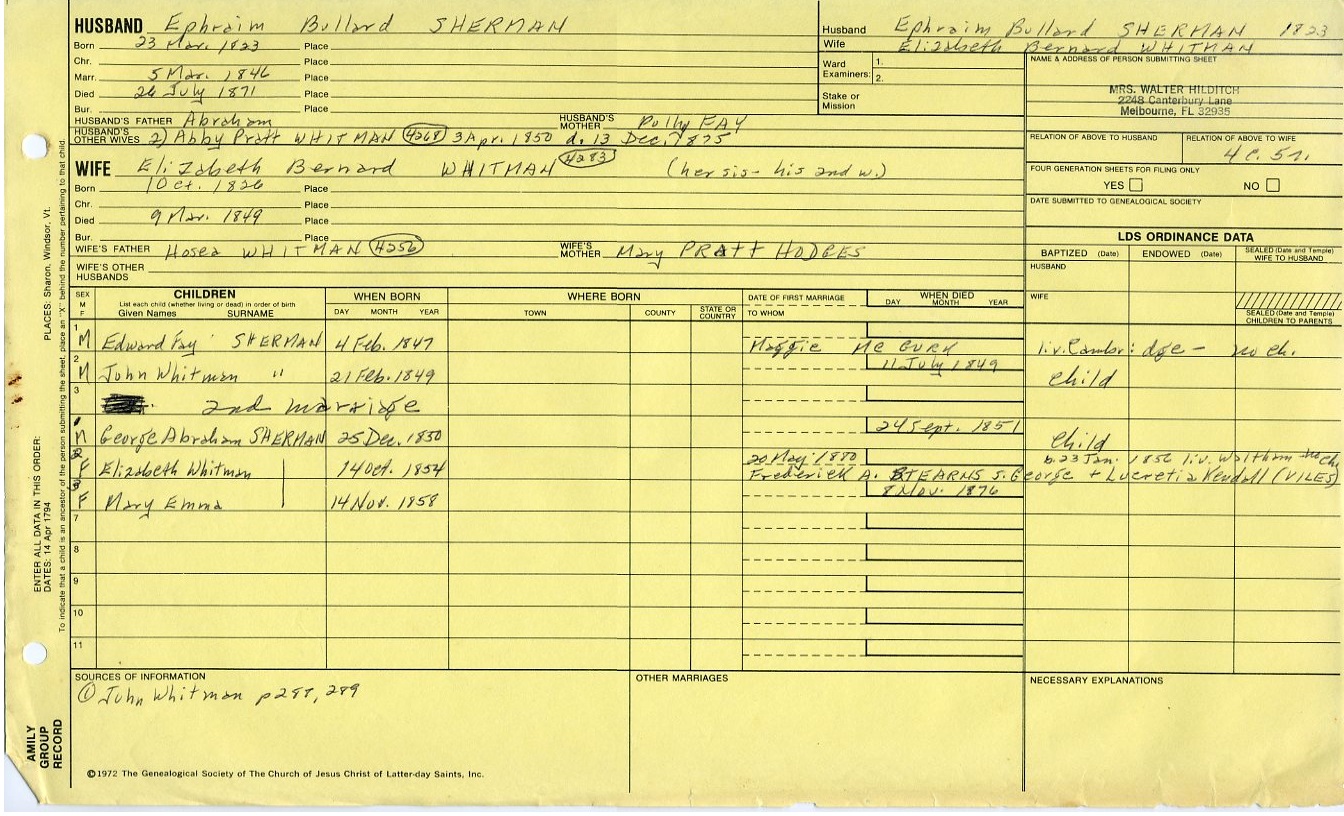 HUSBAND Ephraim Bullard SHERMAN
Born 23 Mar. 1823 Place
Chr. Place
Marr. 5 Mar. 1846 Place
Died 26 July 1871 Place
Bur. Place
HUSBAND'S FATHER Abraham HUSBAND'S MOTHER Polly FAY
HUSBAND'S OTHER WIVES 2) Abby Pratt WHITMAN 4268 3 Apr. 1850 d. 13 Dec. 1875
WIFE Elizabeth Bernard WHITMAN 4283 (her sis - his 2nd w.)
Born 1 Oct. 1826 Place
Chr. Place
Died 9 Mar. 1849 Place
Bur. Place
WIFE'S FATHER Hosea WHITMAN 4256 WIFE'S MOTHER Mary PRATT HODGES
WIFE'S OTHER HUSBANDS
Husband Ephraim Bullard SHERMAN 1823
Wife Elizabeth Bernard WHITMAN
Ward Examiners: 1.
2.
Stake or Mission
NAME & ADDRESS OF PERSON SUBMITTING SHEET
MRS. WALTER HILDITCH
2248 Canterbury Lane
Melbourne, FL 32935
RELATION OF ABOVE TO HUSBAND RELATION OF ABOVE TO WIFE
4c. 5r.
FOUR GENERATION SHEETS FOR FILING ONLY
YES NO
DATE SUBMITTED TO GENEALOGICAL SOCIETY
LDS ORDINANCE DATA
BAPTIZED (Date) ENDOWED (Date) SEALED (Date and Temple) WIFE TO HUSBAND
HUSBAND
WIFE
SEALED (Date and Temple) CHILDREN TO PARENTS
SEX M F
CHILDREN
List each child (whether living or dead) in order of birth
Given Names SURNAME
WHEN BORN
DAY MONTH YEAR
WHERE BORN
TOWN COUNTY STATE OR COUNTRY
DATE OF FIRST MARRIAGE
TO WHOM
WHEN DIED
DAY MONTH YEAR
1 M Edward Fay SHERMAN 4 Feb. 1847 Maggie Mc GURK liv. Cambridge - no ch.
2 M John Whitman " 21 Feb. 1849 11 July 1849 child
3 2nd marriage
1 M George Abraham SHERMAN 25 Dec. 1850 24 Sept. 1851 child
2 F Elizabeth Whitman 14 Oct. 1854 20 May 1880 b. 23 Jan. 1856 liv. Waltham no ch.
Frederick A. STEARNS s. George + Lucretia Kendall (VILES)
3 F Mary Emma 14 Nov. 1858 8 Nov. 1876
7
8
9
10
11
SOURCES OF INFORMATION
① John Whitman p 287, 289
OTHER MARRIAGES
NECESSARY EXPLANATIONS
©1972 The Genealogical Society of The Church of Jesus Christ of Latter-day Saints, Inc.
AMILY GROUP RECORD
ENTER ALL DATA IN THIS ORDER:
DATES: 14 Apr 1794
PLACES: Sharon, Windsor, Vt.
To indicate that a child is an ancestor of the person submitting the sheet, place an "X" behind the number pertaining to that child.